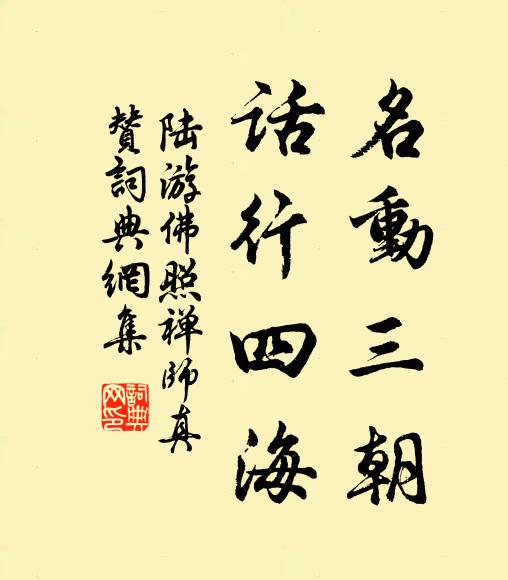 名動三朝
话行四海
陆游佛照禅师真
赞詞典網集
詞典網印